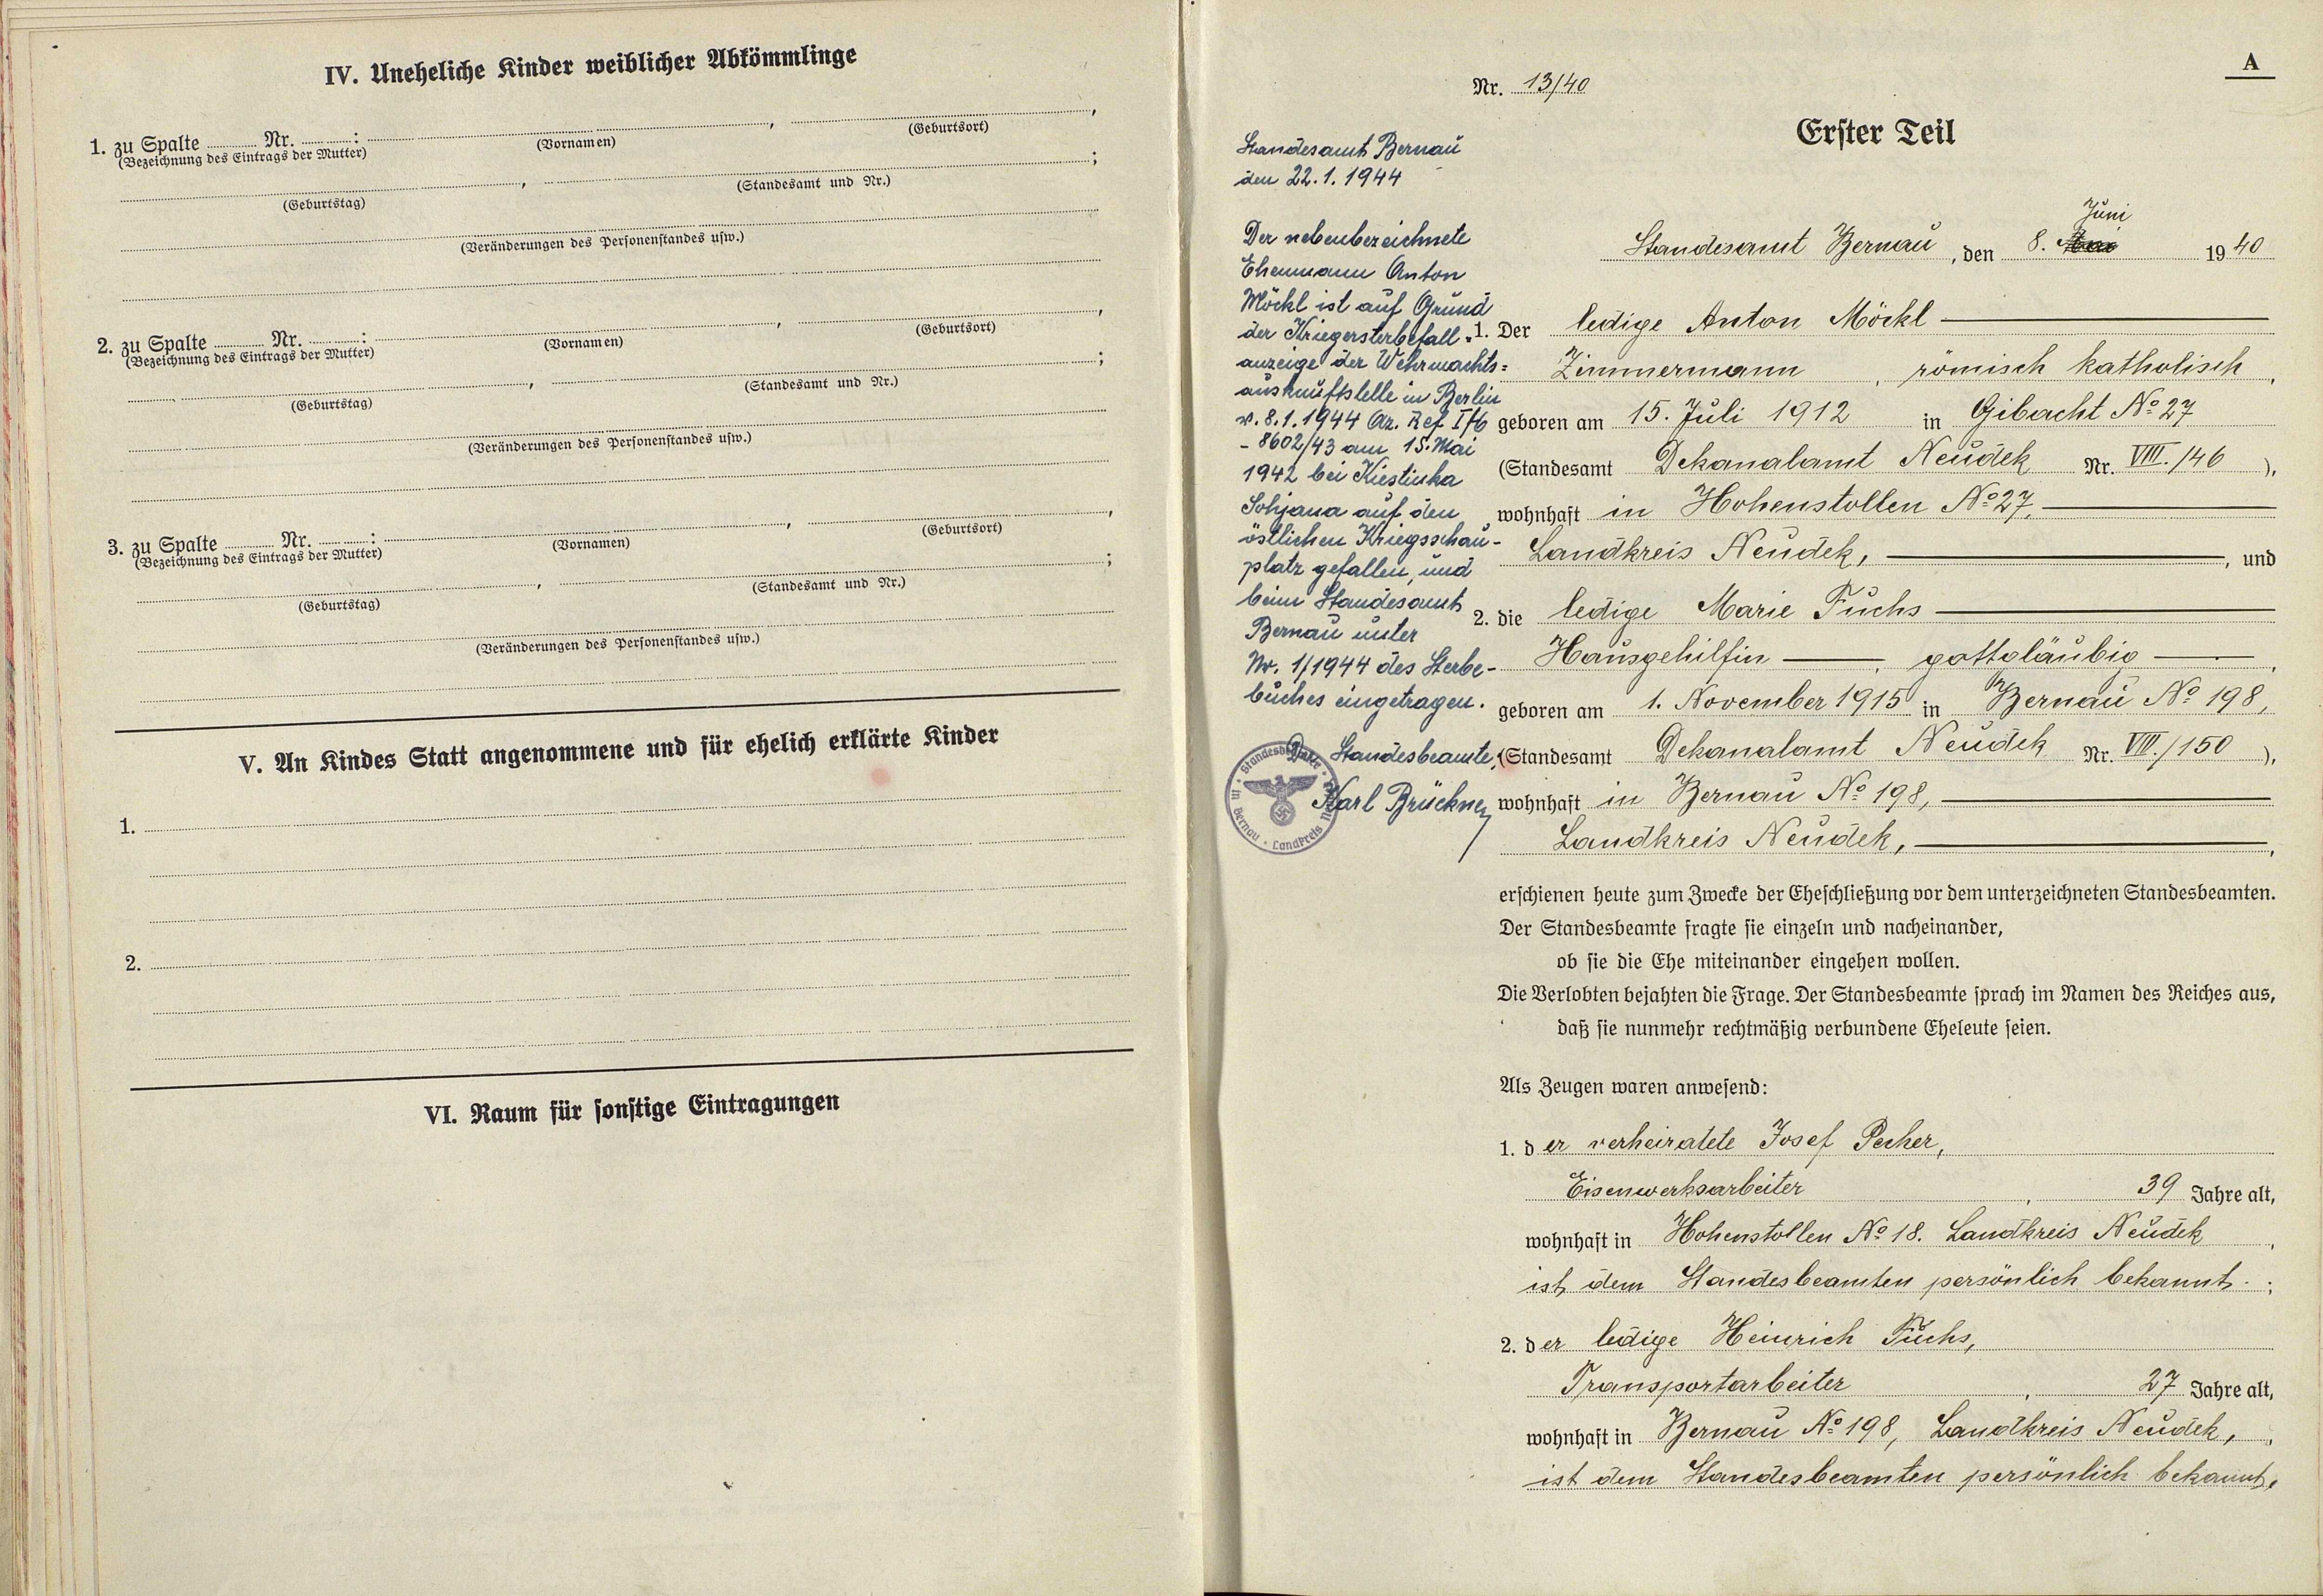 IV. Uneheliche Kinder weiblicher Abkömmlinge
1. zu Spalte Nr. : , ,
(Bezeichnung des Eintrags der Mutter) (Vornamen) (Geburtsort)
, ;
(Geburtstag) (Standesamt und Nr.)
(Veränderungen des Personenstandes usw.)
2. zu Spalte Nr. : , ,
(Bezeichnung des Eintrags der Mutter) (Vornamen) (Geburtsort)
, ;
(Geburtstag) (Standesamt und Nr.)
(Veränderungen des Personenstandes usw.)
3. zu Spalte Nr. : , ,
(Bezeichnung des Eintrags der Mutter) (Vornamen) (Geburtsort)
, ;
(Geburtstag) (Standesamt und Nr.)
(Veränderungen des Personenstandes usw.)
V. An Kindes Statt angenommene und für ehelich erklärte Kinder
1.
2.
VI. Raum für sonstige Eintragungen
A
Nr. 13/40
Standesamt Bernau
den 22.1.1944
Der nebenbezeichnete
Ehemann Anton
Möckl ist auf Grund
der Kriegersterbefall-
anzeige der Wehrmachts=
auskunftstelle in Berlin
v. 8.1.1944 Az. Ref I/6
- 8602/43 am 15. Mai
1942 bei Kiestinka
Sohjana auf den
östlichen Kriegsschau-
platz gefallen, und
beim Standesamt
Bernau unter
Nr. 1/1944 des Sterbe-
buches eingetragen.
Der Standesbeamte,
Karl Brückner
Standesbeamte in Bernau · Landkreis
Erster Teil
Juni
Standesamt Bernau, den 8. 1940
1. Der ledige Anton Möckl
Zimmermann, römisch katholisch,
geboren am 15. Juli 1912 in Gibacht No 27
(Standesamt Dekanalamt Neudek Nr. VIII./46 ),
wohnhaft in Hohenstollen No 27,
Landkreis Neudek, , und
2. die ledige Marie Fuchs
Hausgehilfin, gottgläubig,
geboren am 1. November 1915 in Bernau No 198,
(Standesamt Dekanalamt Neudek Nr. VIII./150 ),
wohnhaft in Bernau No 198,
Landkreis Neudek, ,
erschienen heute zum Zwecke der Eheschließung vor dem unterzeichneten Standesbeamten.
Der Standesbeamte fragte sie einzeln und nacheinander,
ob sie die Ehe miteinander eingehen wollen.
Die Verlobten bejahten die Frage. Der Standesbeamte sprach im Namen des Reiches aus,
daß sie nunmehr rechtmäßig verbundene Eheleute seien.
Als Zeugen waren anwesend:
1. der verheiratete Josef Pecher,
Eisenwerksarbeiter, 39 Jahre alt,
wohnhaft in Hohenstollen No 18. Landkreis Neudek,
ist dem Standesbeamten persönlich bekannt. ;
2. der ledige Heinrich Fuchs,
Transportarbeiter, 27 Jahre alt,
wohnhaft in Bernau No 198, Landkreis Neudek, ,
ist dem Standesbeamten persönlich bekannt.